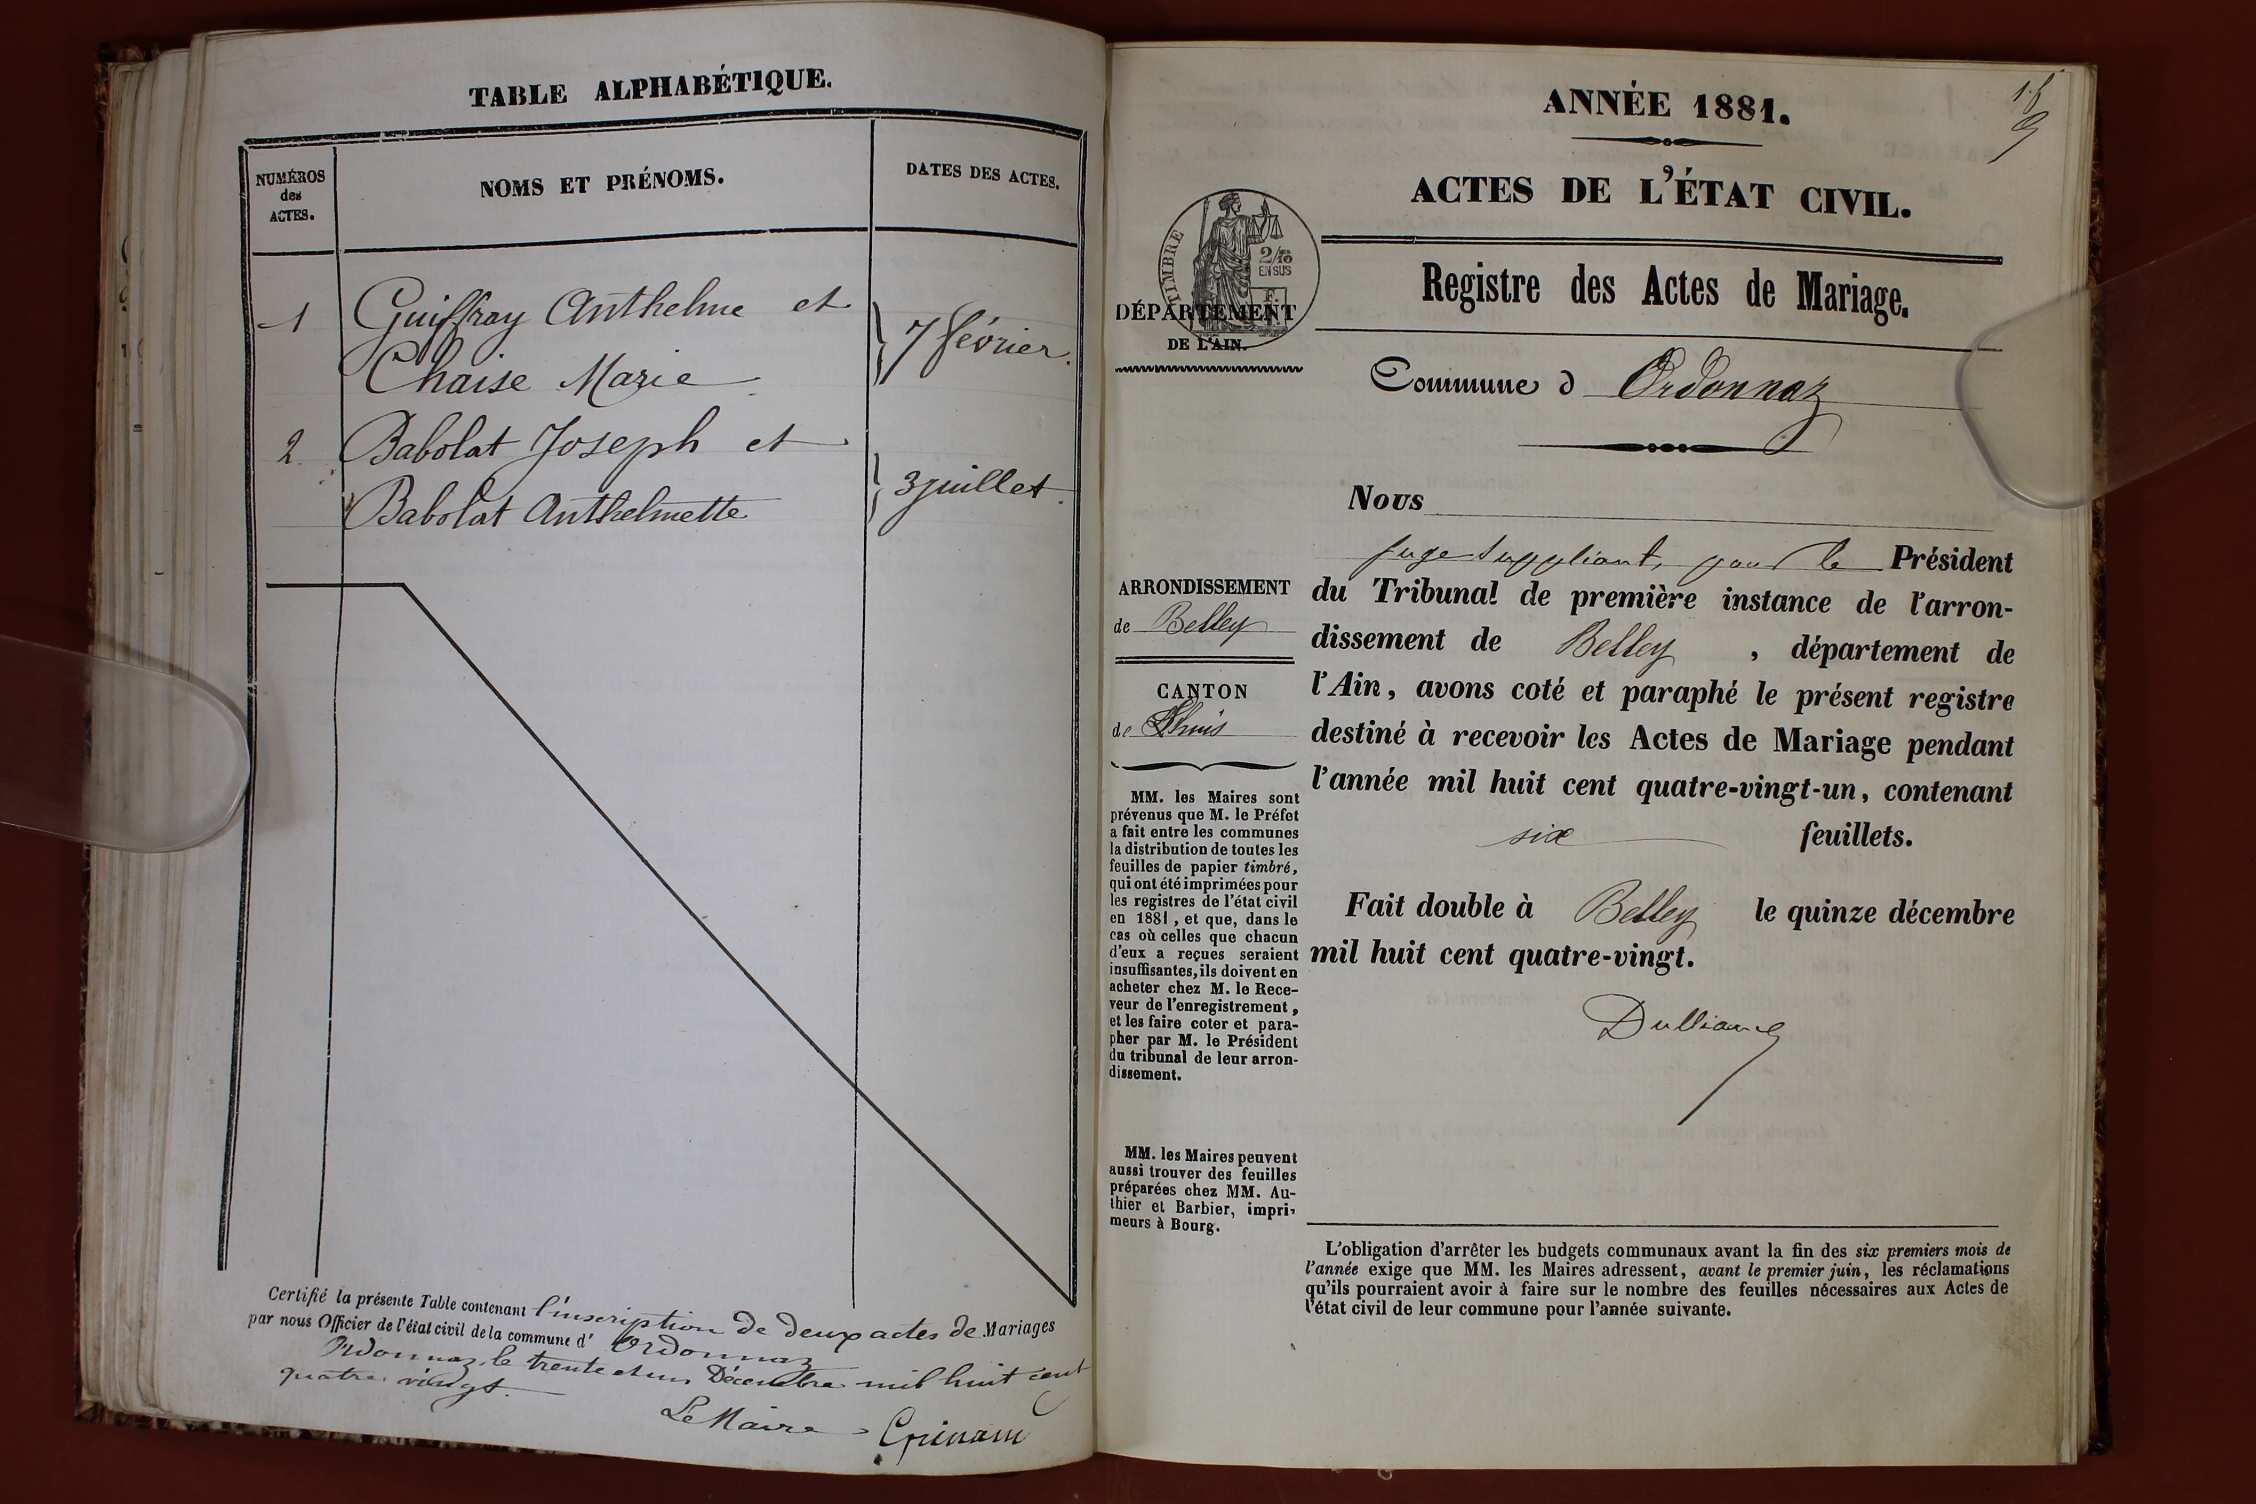 TABLE ALPHABÉTIQUE.
NUMÉROS
des
ACTES.
NOMS ET PRÉNOMS.
DATES DES ACTES.
1 Guiffray Anthelme et
Chaise Marie
7 février.
2. Babolat Joseph et
Babolat Anthelmette
3 juillet.
Certifié la présente Table contenant l'inscription de deux actes de Mariages
par nous Officier de l'état civil de la commune d' Ordonnaz
Ordonnaz, le trente et un Décembre mil huit cent
quatre vingt.
Le Maire
ANNÉE 1881.
ACTES DE L'ÉTAT CIVIL.
TIMBRE
2/10
EN SUS
DÉPARTEMENT
DE L'AIN.
Registre des Actes de Mariage.
Commune d Ordonnaz
ARRONDISSEMENT
de Belley
CANTON
de Lhuis
MM. les Maires sont
prévenus que M. le Préfet
a fait entre les communes
la distribution de toutes les
feuilles de papier timbré,
qui ont été imprimées pour
les registres de l'état civil
en 1881, et que, dans le
cas où celles que chacun
d'eux a reçues seraient
insuffisantes, ils doivent en
acheter chez M. le Rece-
veur de l'enregistrement,
et les faire coter et para-
pher par M. le Président
du tribunal de leur arron-
dissement.
MM. les Maires peuvent
aussi trouver des feuilles
préparées chez MM. Au-
thier et Barbier, impri-
meurs à Bourg.
Nous
juge suppléant, pour le Président
du Tribunal de première instance de l'arron-
dissement de Belley , département de
l'Ain, avons coté et paraphé le présent registre
destiné à recevoir les Actes de Mariage pendant
l'année mil huit cent quatre-vingt-un, contenant
six feuillets.
Fait double à Belley le quinze décembre
mil huit cent quatre-vingt.
L'obligation d'arrêter les budgets communaux avant la fin des six premiers mois de
l'année exige que MM. les Maires adressent, avant le premier juin, les réclamations
qu'ils pourraient avoir à faire sur le nombre des feuilles nécessaires aux Actes de
l'état civil de leur commune pour l'année suivante.